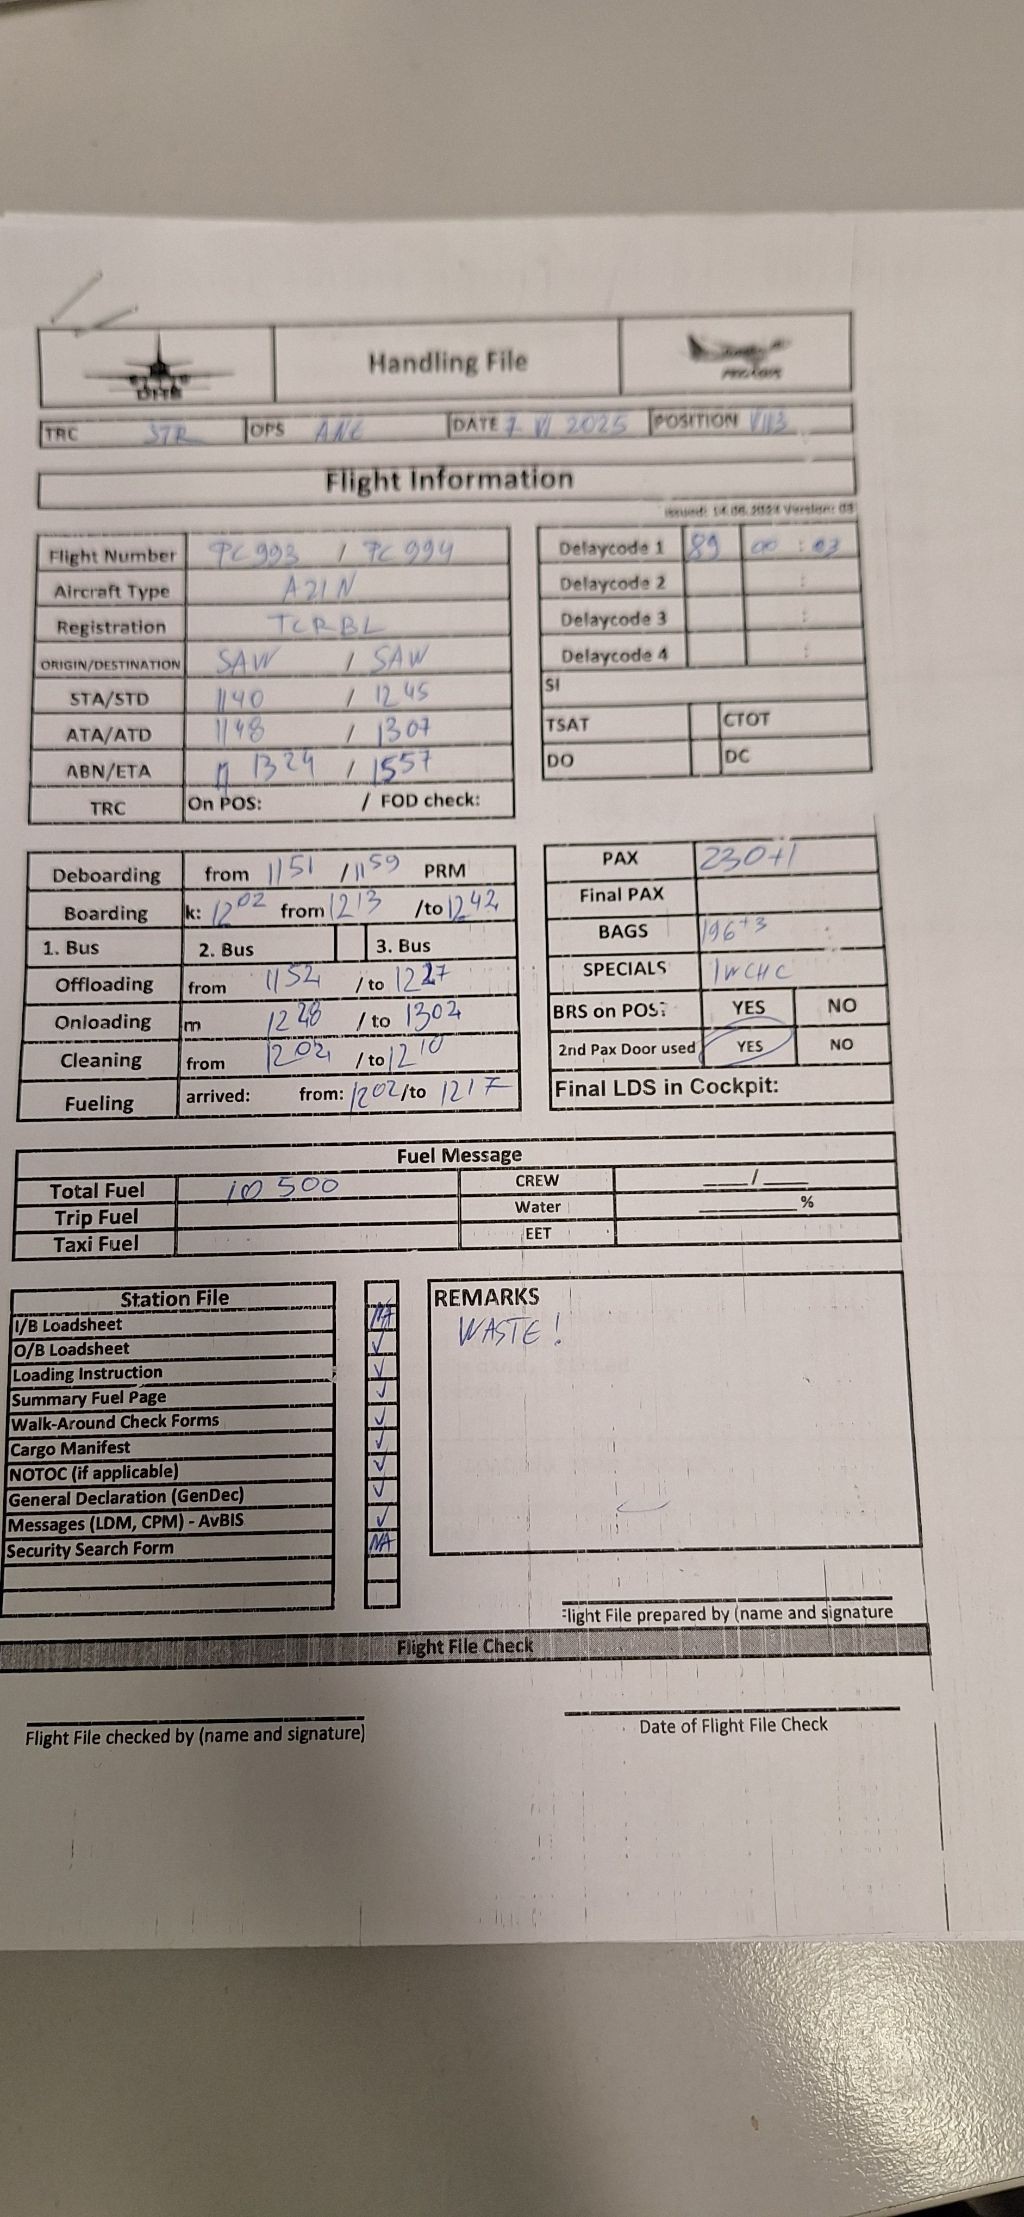 Handling File
TRC STR OPS DATE 7 VI 2025 POSITION V113
Flight Information
Issued: 14.06.2024 Version: 03
Flight Number PC 993 / PC 994
Aircraft Type A21N
Registration TCRBL
ORIGIN/DESTINATION SAW / SAW
STA/STD 1140 / 1245
ATA/ATD 1148 / 1307
ABN/ETA 1324 / 1557
TRC On POS: / FOD check:
Delaycode 1 89 00 : 03
Delaycode 2 :
Delaycode 3 :
Delaycode 4 :
SI
TSAT CTOT
DO DC
Deboarding from 1151 / 1159 PRM
Boarding k: 1202 from 1213 /to 1242
1. Bus 2. Bus 3. Bus
Offloading from 1152 / to 1227
Onloading m 1228 / to 1302
Cleaning from 1202 / to 1210
Fueling arrived: from: 1202 /to 1217
PAX 230+1
Final PAX
BAGS 196+3
SPECIALS 1WCHC
BRS on POS: YES NO
2nd Pax Door used YES NO
Final LDS in Cockpit:
Fuel Message
Total Fuel 10 500 CREW /
Trip Fuel Water %
Taxi Fuel EET
Station File
I/B Loadsheet NA
O/B Loadsheet ✓
Loading Instruction ✓
Summary Fuel Page ✓
Walk-Around Check Forms ✓
Cargo Manifest ✓
NOTOC (if applicable) ✓
General Declaration (GenDec) ✓
Messages (LDM, CPM) - AvBIS ✓
Security Search Form NA
REMARKS
WASTE!
Flight File prepared by (name and signature
Flight File Check
Flight File checked by (name and signature)
Date of Flight File Check